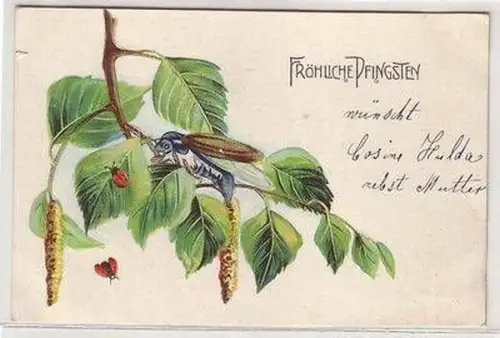 Fröhliche Pfingsten
wünscht
Cosine Hulda
nebst Mutter